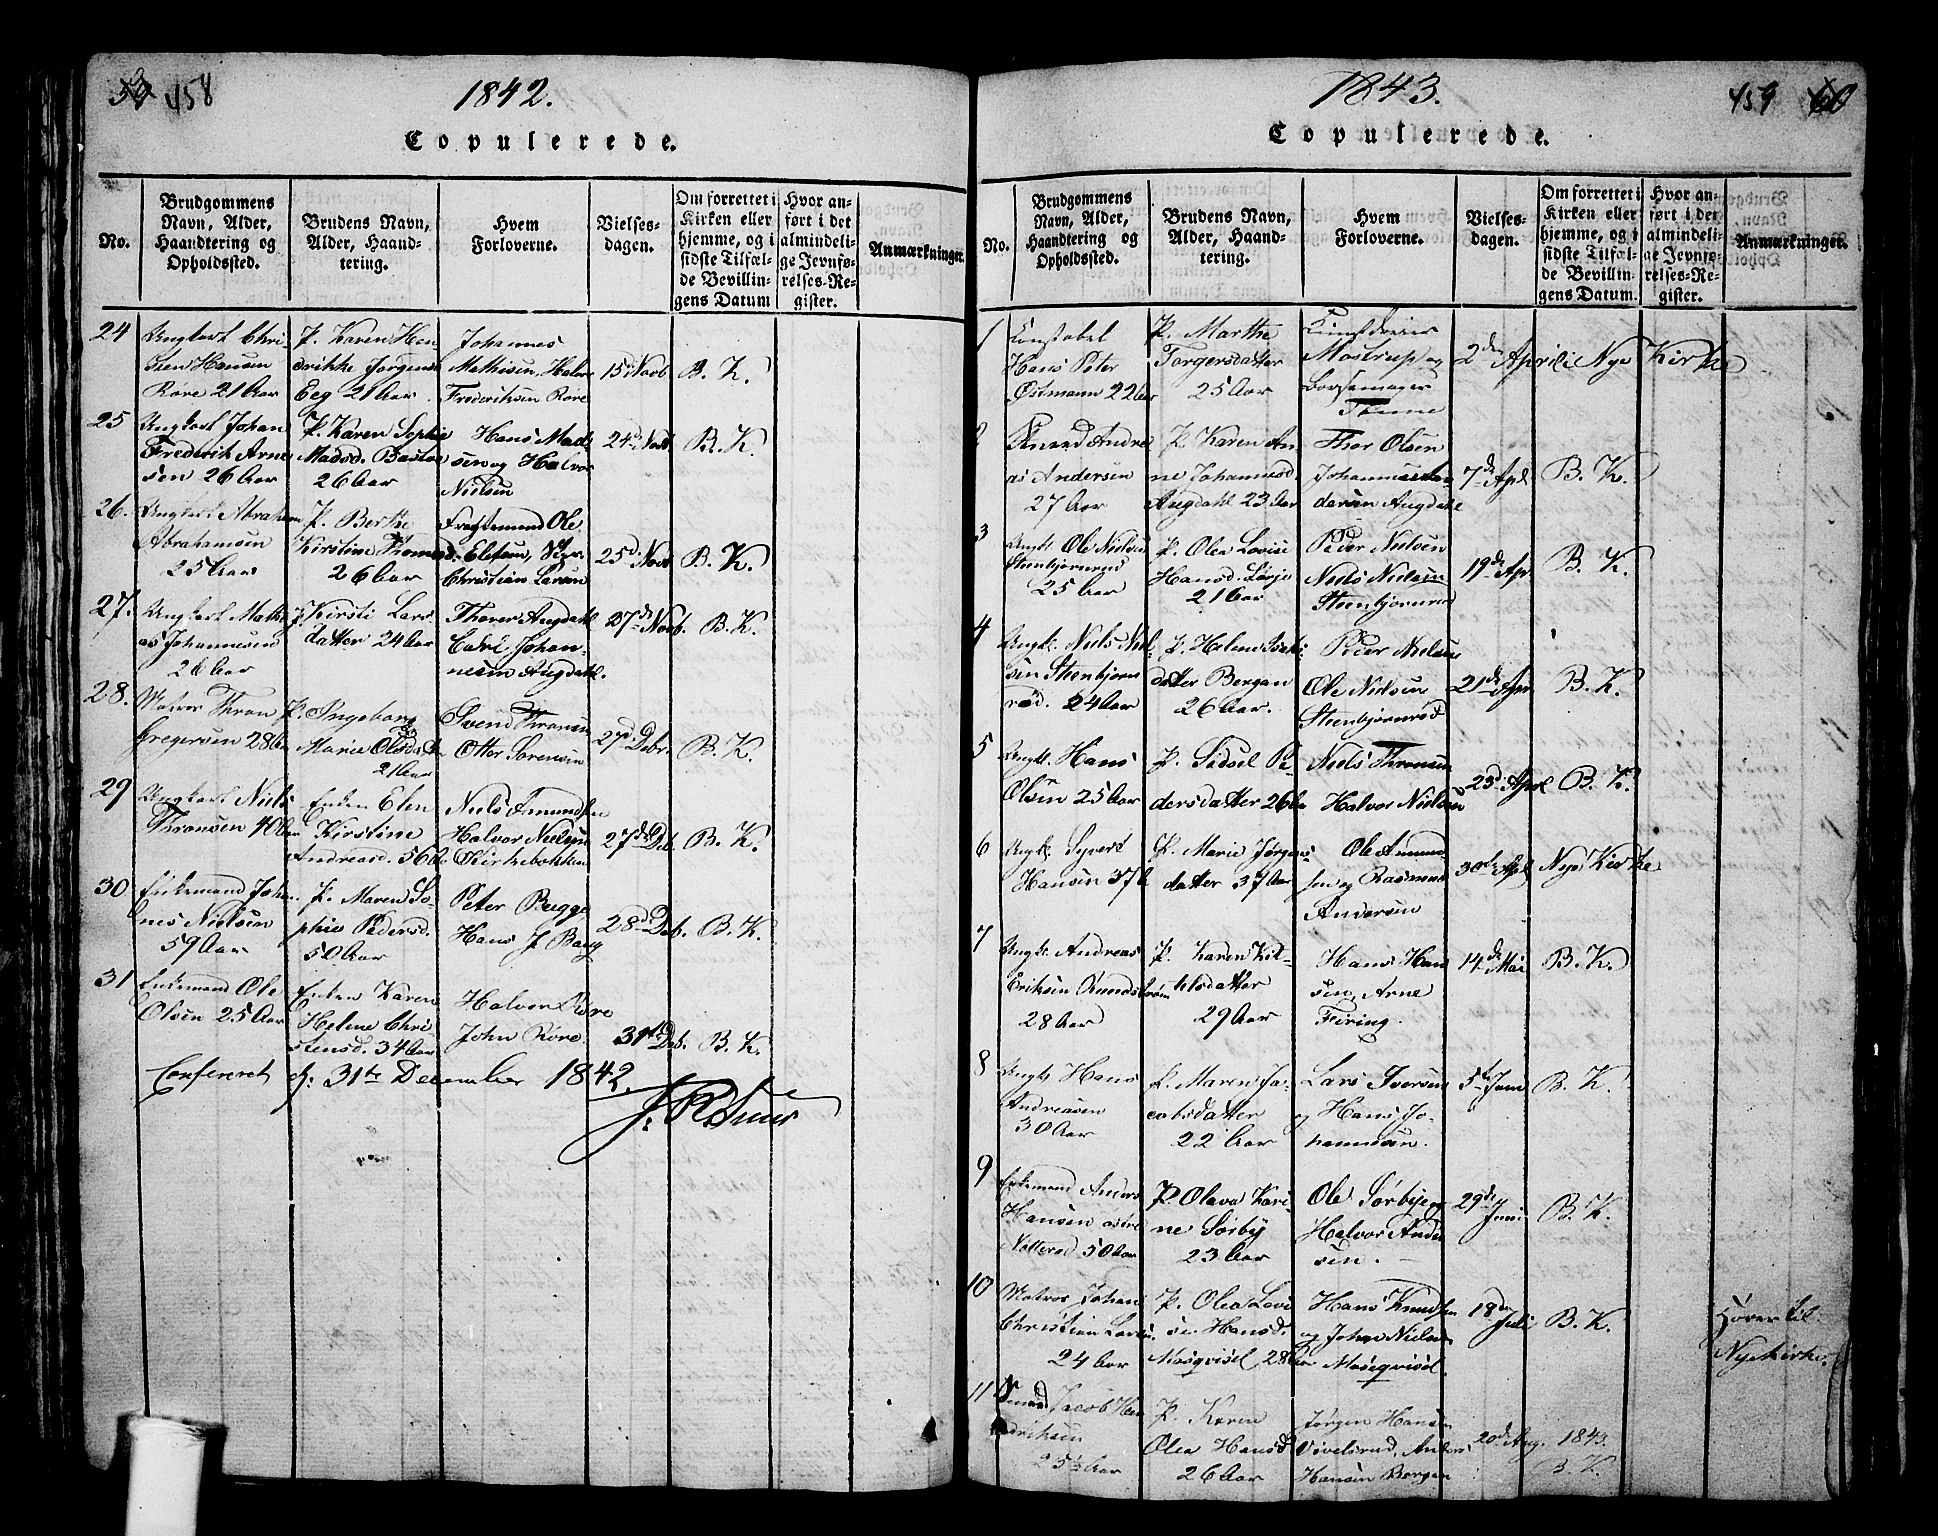 458
1842.
Copulerede.
No.
Brudgommens
Navn, Alder,
Haandtering og
Opholdssted.
Brudens Navn,
Alder, Haand-
tering.
Hvem
Forloverne.
Vielses-
dagen.
Om forrettet i
Kirken eller
hjemme, og i
sidste Tilfæl-
de Bevillin-
gens Datum
Hvor an-
ført i det
almindeli-
ge Jevnfø-
relses-Re-
gister.
Anmærkninger.
24
Ungkarl Chri-
sten Hansen
Røre 21 Aar
P. Karen Hen
drikke Jørgensd
Eeg 21 Aar.
Johannes
Mathisen, Halvor
Frederiksen Røre
15d Novb
B. K.
25
Ungkarl Johan
Frederik Arne
sen 26 Aar
P. Karen Sophie
Madsd. Bastøe
26 Aar
Hans Mad
sen og Halvor
Nielsen
24d Novb
B. K.
26.
Ungkarl Abraham
Abrahamsen
25 Aar
P. Berthe
Kirstine Thomasd.
26 Aar
Ole
Elefsen,
Christian Larsen
25d. Novb
B. K.
27.
Ungkarl Mathi
as Johannesen
26 Aar
P. Kirsti Lars
datter 24 Aar
Thorer Augdahl
Carl Johan-
nesen Augdahl.
27de Novb.
B. K.
28.
Matros Thron
Gregersen 28 Aar
P. Ingeborg
Marie Olsdatter
21 Aar
Svend Thronsen
Otter Sørensen
27d Debr.
B. K.
29
Ungkarl Niels
Thronsen 40 Aar
Enken Elen
Kirstine
Andreasd. 56 A.
Niels Amundsen
Halvor Nielsen
Kirkebakken
27de Deb.
B. K.
30
Enkemand Johan
nes Nielsen
59 Aar
P. Maren So-
phie Pedersd.
50 Aar
Peter Bugge
Hans J Bang
28d Deb.
B. K.
31
Enkemand Ole
Olsen 25 Aar
Enken Karen
Helene Chri
stensd. 34 Aar
Halvor Røre
John Røre
31te Deb.
B. K.
Confereret d: 31te December 1842.
459
1843.
Copulerede.
No.
Brudgommens
Navn, Alder,
Haandtering og
Opholdssted.
Brudens Navn,
Alder, Haand-
tering.
Hvem
Forloverne.
Vielses-
dagen.
Om forrettet i
Kirken eller
hjemme, og i
sidste Tilfæl-
de Bevillin-
gens Datum.
Hvor an-
ført i det
almindeli-
ge Jevnfø-
relses-Re-
gister.
Anmærkninger.
1
Constabel
Hans Peter
Østmann 22 Aar
P. Marthe
Torgersdatter
25 Aar
Mostrup og
Børsemager
Tønne
2den Aprili Nye Kirke
2
Andre
as Andersen
27 Aar
P. Karen An
ne Johannesd
Augdahl 23 Aar
Thor Olsen
Johannes An
dersen Augdahl
7de Apl
B. K.
3
Ungk. Ole Nielsen
Steenbjørnrød
25 Aar
P. Olea Lovise
Hansd. Lørje
21 Aar
Peder Nielsen
Niels Nielsen
Steenbjørnrød
19de Apr
B. K.
4
Ungk. Niels Niel-
sen Steenbjørn
rød. 24 Aar
P. Helene Isaks
datter Bergan
26 Aar.
Peder Nielsen
Ole Nielsen
Steenbjørnrød
21de Apr
B. K.
5
Ungk. Hans
Olsen 25 Aar
P. Sidsel Pe-
dersdatter 26 Aar
Niels Thronsen
Halvor Nielsen
23d. Aprl
B. K.
6
Ungk. Syvert
Hansen 37 A
P. Marie Jørgens-
datter 37 Aar
Ole Amund-
sen og Rasmus
Andersen
30te Apl
Nye Kirke
7
Ungk. Andreas
Eriksen Rundstrøm
28 Aar
P. Karen Kit-
tilsdatter
29 Aar
Hans Han
sen, Arne
Feiring.
14de Mai
B. K.
8
Ungk Hans
Andreasen
30 Aar
P. Maren Ja-
cobsdatter
22 Aar
Lars Iversen
og Hans Jo-
hannesen.
5te Juni
B. K.
9
Enkemand Anders
Hansen østre
Nøtterød 50 Aar
P Olava Kari-
ne Sørby
23 Aar
Ole Sørbye og
Halvor Ander
sen.
29de
Juni
B. K.
10
Matros Johan
Christian Larsen
24 Aar
P. Olea Lovi
se Hansd.
Møsqvisel 28 Aar
Hans Knudsen
og Johan Nielsen
Møseqvisel.
18de
Juli
B. K.
Hører til
Nyekirke.
11
Jacob Hen
driksen
25½ Aar
P. Karen
Olea Hansd
26 Aar
Jørgen Hansen
Vivelsrud, Anders
Hansen Borgen
20d Aug. 1843.
B. K.